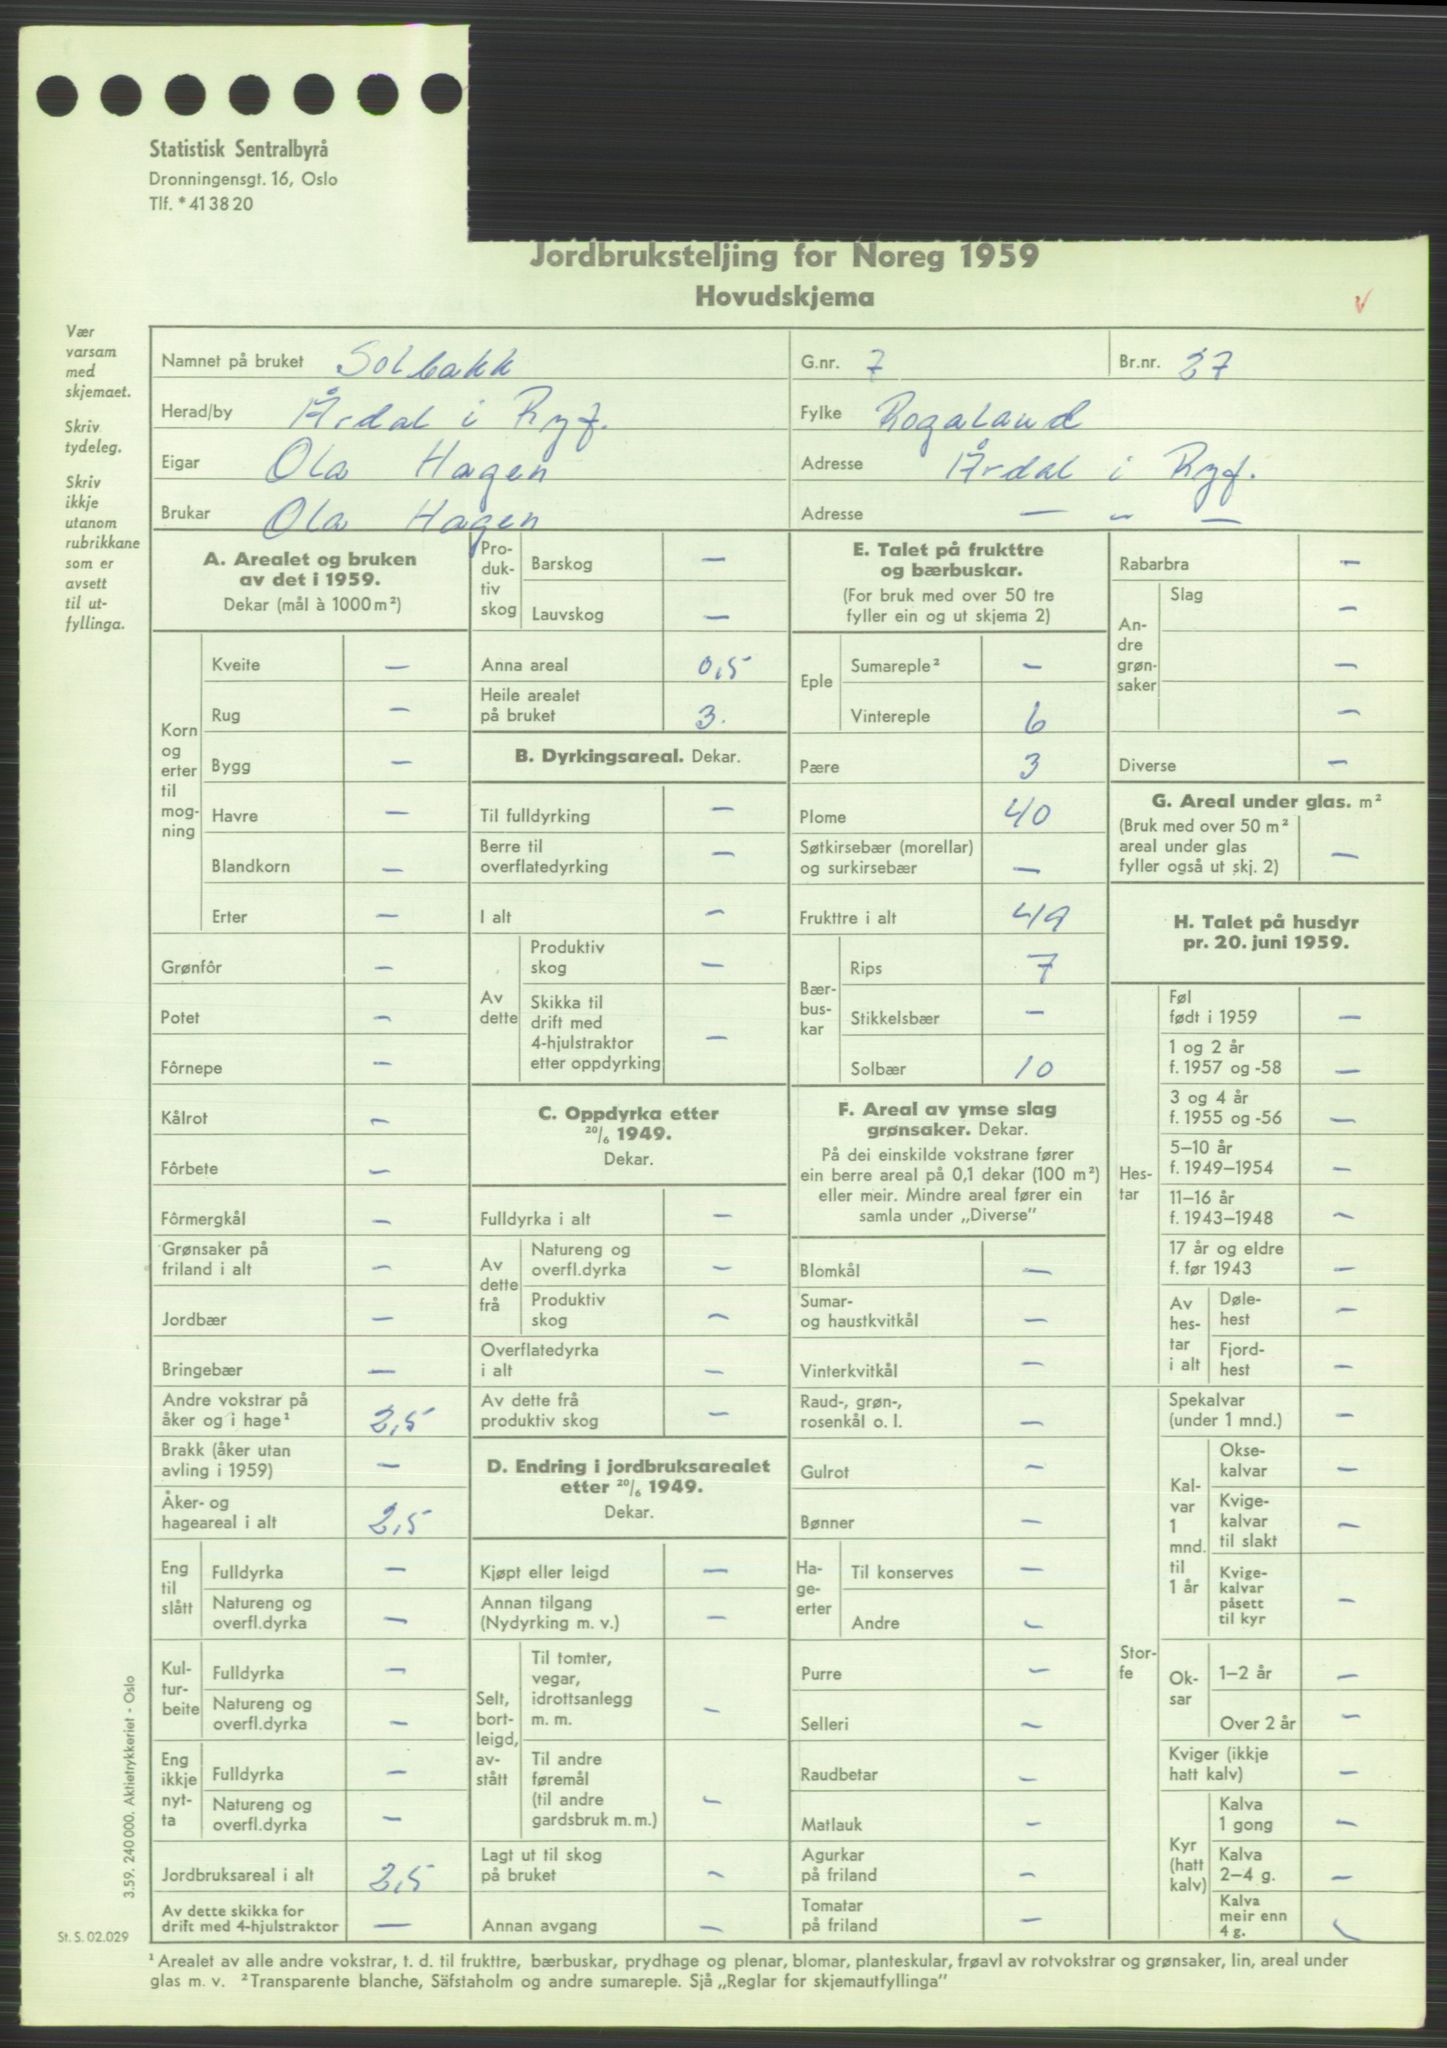 Statistisk Sentralbyrå
Dronningensgt. 16, Oslo
Tlf. * 41 38 20
Jordbruksteljing for Noreg 1959
Hovudskjema
Vær
varsam
med
skjemaet.
Skriv
tydeleg.
Skriv
ikkje
utanom
rubrikkane
som er
avsett
til ut-
fyllinga.
Namnet på bruket Solbakk G.nr. 7 Br.nr. 37
Herad/by Årdal i Ryf. Fylke Rogaland
Eigar Ola Hagen Adresse Årdal i Ryf.
Brukar Ola Hagen Adresse — „ —
A. Arealet og bruken
av det i 1959.
Dekar (mål à 1000 m²)
Korn
og
erter
til
mog-
ning
Kveite —
Rug —
Bygg —
Havre —
Blandkorn —
Erter —
Grønfôr —
Potet —
Fôrnepe —
Kålrot —
Fôrbete —
Fôrmergkål —
Grønsaker på
friland i alt —
Jordbær —
Bringebær —
Andre vokstrar på
åker og i hage¹ 2,5
Brakk (åker utan
avling i 1959) —
Åker- og
hageareal i alt 2,5
Eng
til
slått
Fulldyrka —
Natureng og
overfl.dyrka —
Kul-
tur-
beite
Fulldyrka —
Natureng og
overfl.dyrka —
Eng
ikkje
nyt-
ta
Fulldyrka —
Natureng og
overfl.dyrka —
Jordbruksareal i alt 2,5
Av dette skikka for
drift med 4-hjulstraktor —
Pro-
duk-
tiv
skog
Barskog —
Lauvskog —
Anna areal 0,5
Heile arealet
på bruket 3.
B. Dyrkingsareal. Dekar.
Til fulldyrking —
Berre til
overflatedyrking —
I alt —
Av
dette
Produktiv
skog —
Skikka til
drift med
4-hjulstraktor
etter oppdyrking —
C. Oppdyrka etter
20/6 1949.
Dekar.
Fulldyrka i alt —
Av
dette
frå
Natureng og
overfl.dyrka —
Produktiv
skog —
Overflatedyrka
i alt —
Av dette frå
produktiv skog —
D. Endring i jordbruksarealet
etter 20/6 1949.
Dekar.
Kjøpt eller leigd —
Annan tilgang
(Nydyrking m. v.) —
Selt,
bort-
leigd,
av-
stått
Til tomter,
vegar,
idrottsanlegg
m. m. —
Til andre
føremål
(til andre
gardsbruk m. m.) —
Lagt ut til skog
på bruket —
Annan avgang —
E. Talet på frukttre
og bærbuskar.
(For bruk med over 50 tre
fyller ein og ut skjema 2)
Eple
Sumareple² —
Vintereple 6
Pære 3
Plome 40
Søtkirsebær (morellar)
og surkirsebær —
Frukttre i alt 49
Bær-
bus-
kar
Rips 7
Stikkelsbær —
Solbær 10
F. Areal av ymse slag
grønsaker. Dekar.
På dei einskilde vokstrane fører
ein berre areal på 0,1 dekar (100 m²)
eller meir. Mindre areal fører ein
samla under „Diverse”
Blomkål —
Sumar-
og haustkvitkål —
Vinterkvitkål —
Raud-, grøn-,
rosenkål o. l. —
Gulrot —
Bønner —
Ha-
ge-
erter
Til konserves —
Andre —
Purre —
Selleri —
Raudbetar —
Matlauk —
Agurkar
på friland —
Tomatar
på friland —
Rabarbra —
An-
dre
grøn-
saker
Slag
—
—
—
Diverse —
G. Areal under glas. m²
(Bruk med over 50 m²
areal under glas
fyller også ut skj. 2) —
H. Talet på husdyr
pr. 20. juni 1959.
Hes-
tar
Føl
født i 1959 —
1 og 2 år
f. 1957 og -58 —
3 og 4 år
f. 1955 og -56 —
5–10 år
f. 1949–1954 —
11–16 år
f. 1943–1948 —
17 år og eldre
f. før 1943 —
Av
hes-
tar
i alt
Døle-
hest —
Fjord-
hest —
Stor-
fe
Spekalvar
(under 1 mnd.) —
Kal-
var
1
mnd.
til
1 år
Okse-
kalvar —
Kvige-
kalvar
til slakt —
Kvige-
kalvar
påsett
til kyr —
Ok-
sar
1–2 år —
Over 2 år —
Kviger (ikkje
hatt kalv) —
Kyr
(hatt
kalv)
Kalva
1 gong —
Kalva
2–4 g. —
Kalva
meir enn
4 g. —
3.59. 240 000. Aktietrykkeriet - Oslo
St. S. 02.029
¹ Arealet av alle andre vokstrar, t. d. til frukttre, bærbuskar, prydhage og plenar, blomar, planteskular, frøavl av rotvokstrar og grønsaker, lin, areal under
glas m. v. ² Transparente blanche, Säfstaholm og andre sumareple. Sjå „Reglar for skjemautfyllinga”